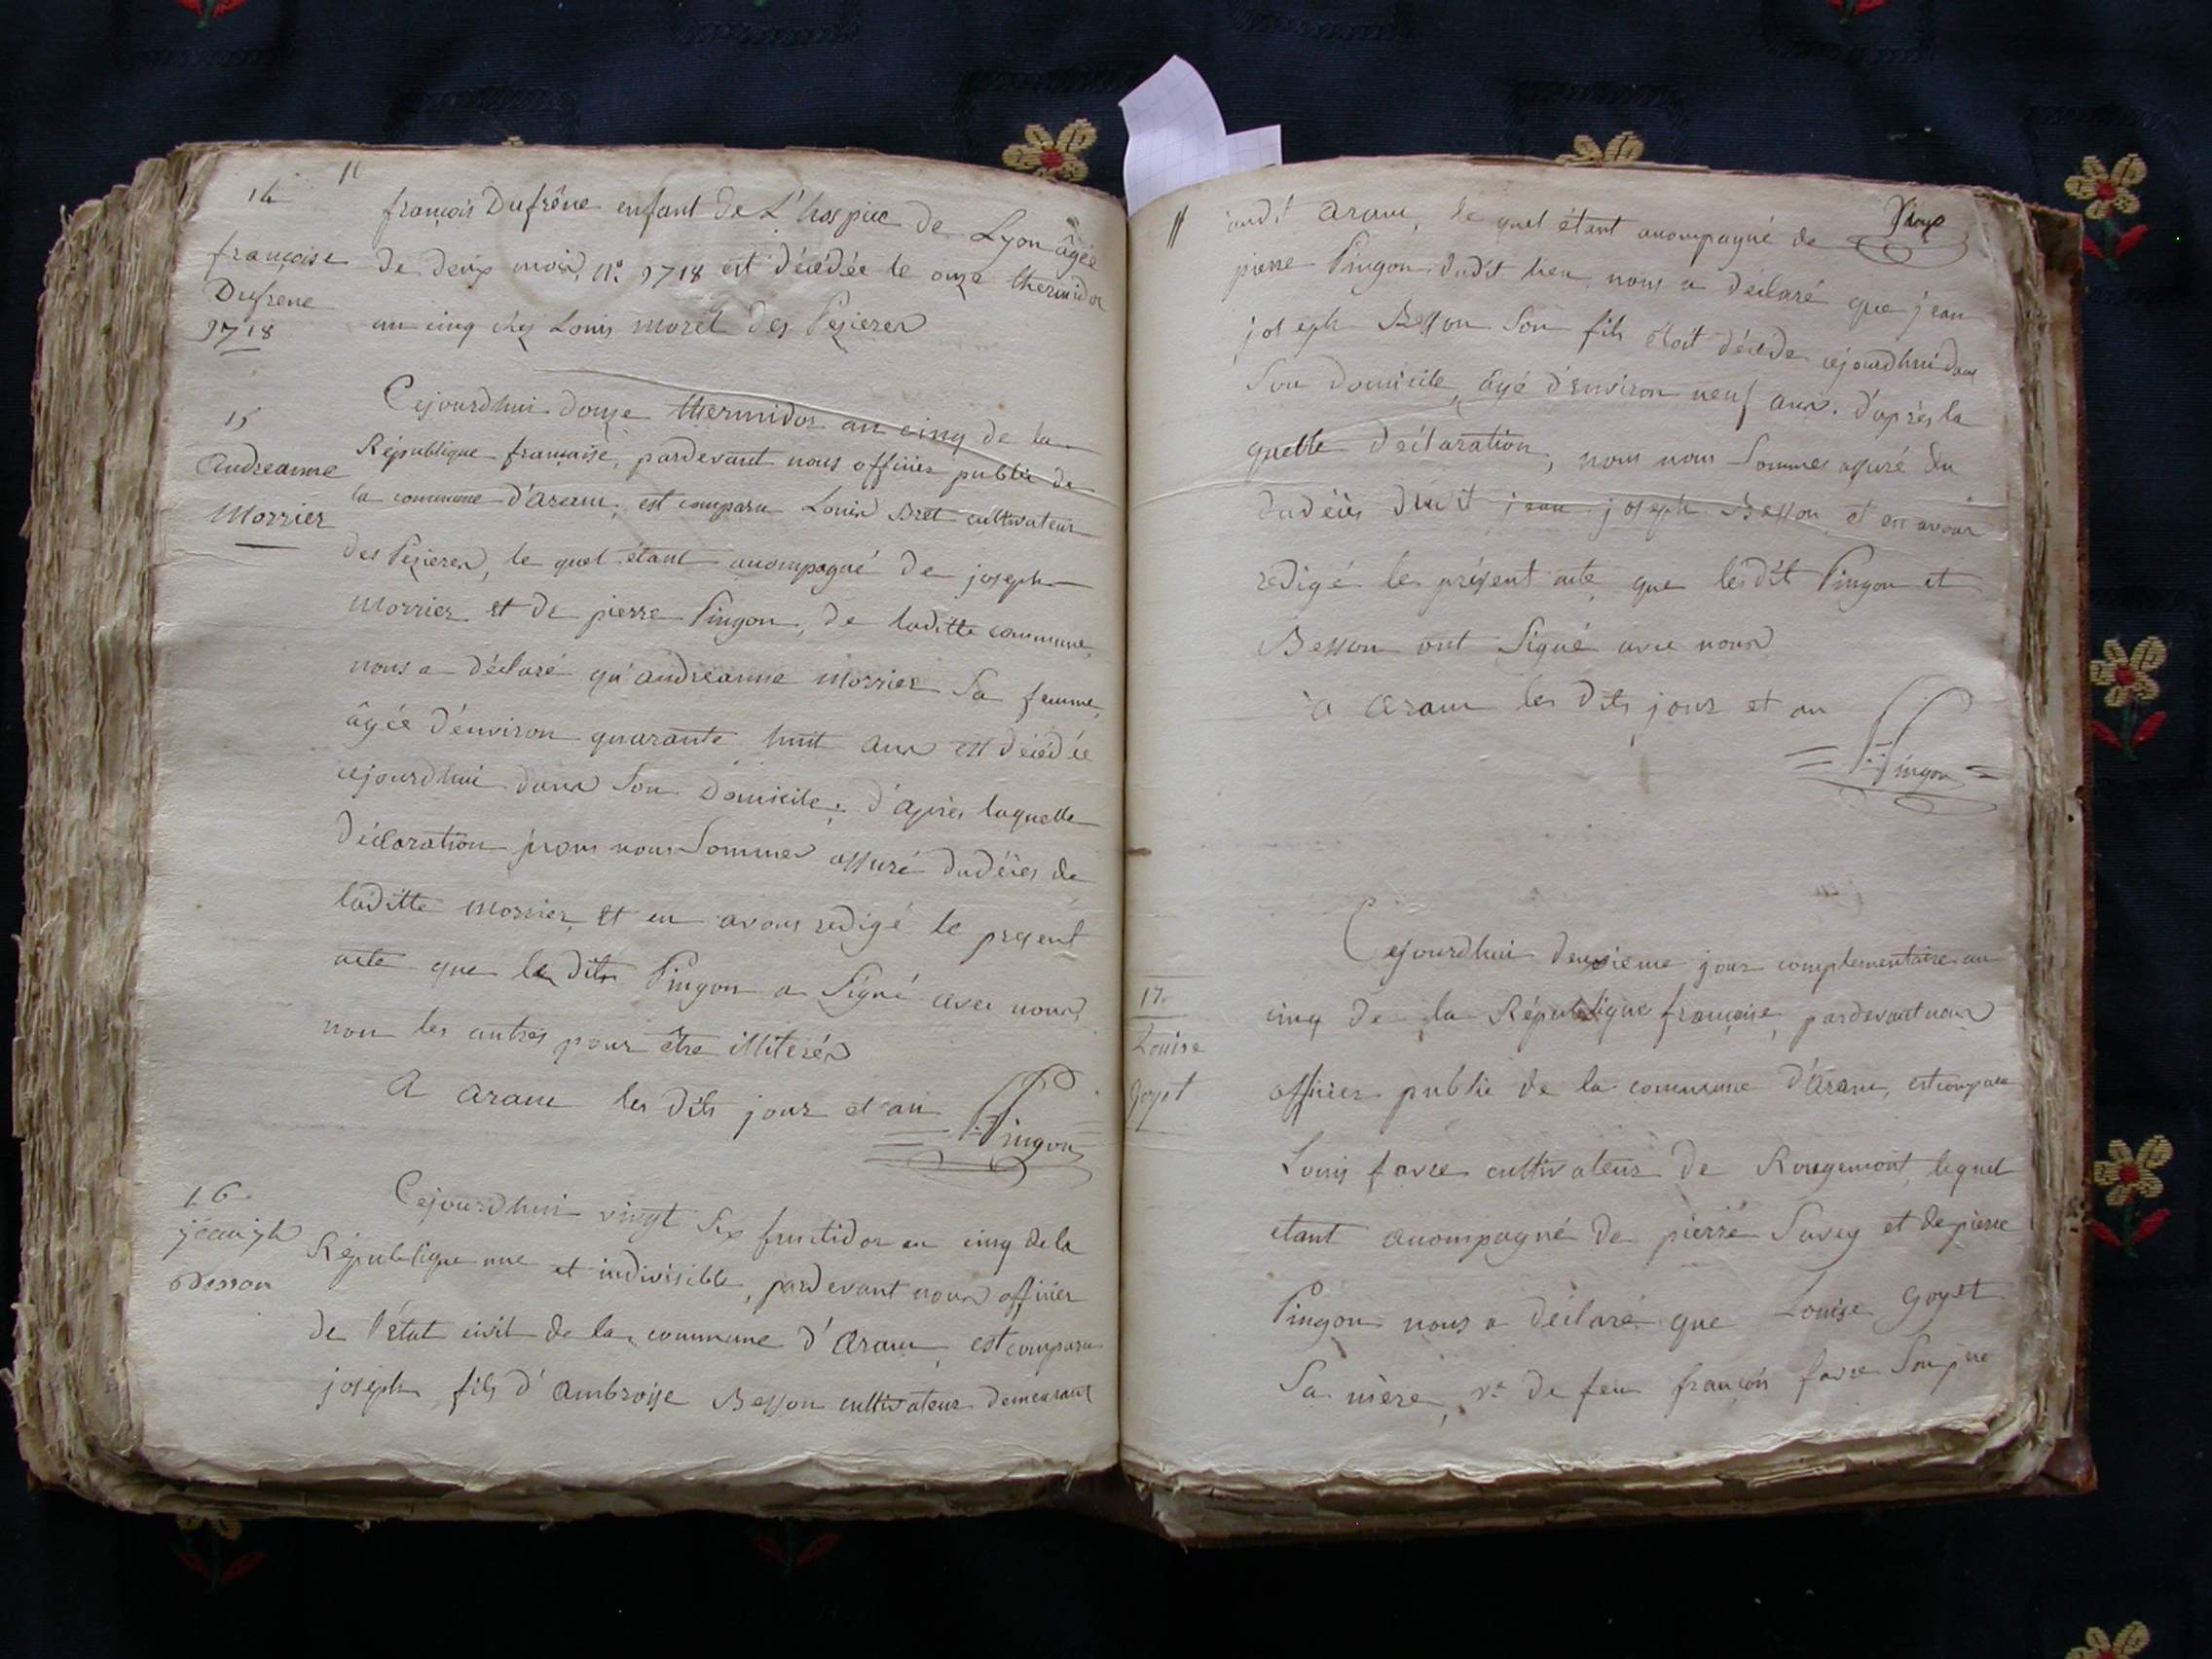 11
14
françoise
Dufrene
9718
françois Dufrêne enfant de L'hospice de Lyon âgée
de deux mois, n°. 9718 est décédée le onze thermidor
an cinq chez Louis moret des Pezieres
15
andreanne
Morrier
Cejourdhui douze thermidor an cinq de la
République française, pardevant nous officier public de
la commune d'aranc, est comparu Louis Bret cultivateur
des Pezieres, le quel étant acompagné de joseph
morrier et de pierre Pingon, de laditte commune,
nous a déclaré qu'andreanne morrier Sa femme,
âgée d'environ quarante huit ans est décédée
cejourdhui dans Son Domicile; d'après laquelle
déclaration nous nous Sommes assuré du décès de
laditte morrier, et en avons redigé le present
acte que le dits Pingon a Signé avec nous,
non les autres pour être illiterés
A aranc les dits jour et an
Pingon
16
jean jph
Besson
Cejourdhui vingt Six fructidor an cinq de la
République une et indivisible, pardevant nous officier
de l'état civil de la commune d'aranc, est comparu
joseph fils d'ambroise Besson cultivateur demeurant
audit aranc, le quel étant acompagné de
pierre Pingon dudit lieu, nous a déclaré que jean
joseph Besson Son fils étoit décédé cejourdhui dans
Son domicile, âgé d'environ neuf ans. d'après la
quelle déclaration, nous nous Sommes assuré du
du décès dudit jean joseph Besson, et en avons
redigé le présent acte, que lesdit Pingon et
Besson ont Signé avec nous
a aranc les dits jour et an
Pingon
17.
Louise
goyet
Cejourdhui deuxieme jour complementaire an
cinq de la République française, pardevant nous
officier public de la commune d'aranc, est comparu
Louis favre cultivateur de Rougemont, lequel
etant acompagné de pierre Savey et de pierre
Pingon nous a déclaré que Louise goyet
Sa mère, ve de feu françois favre Son père